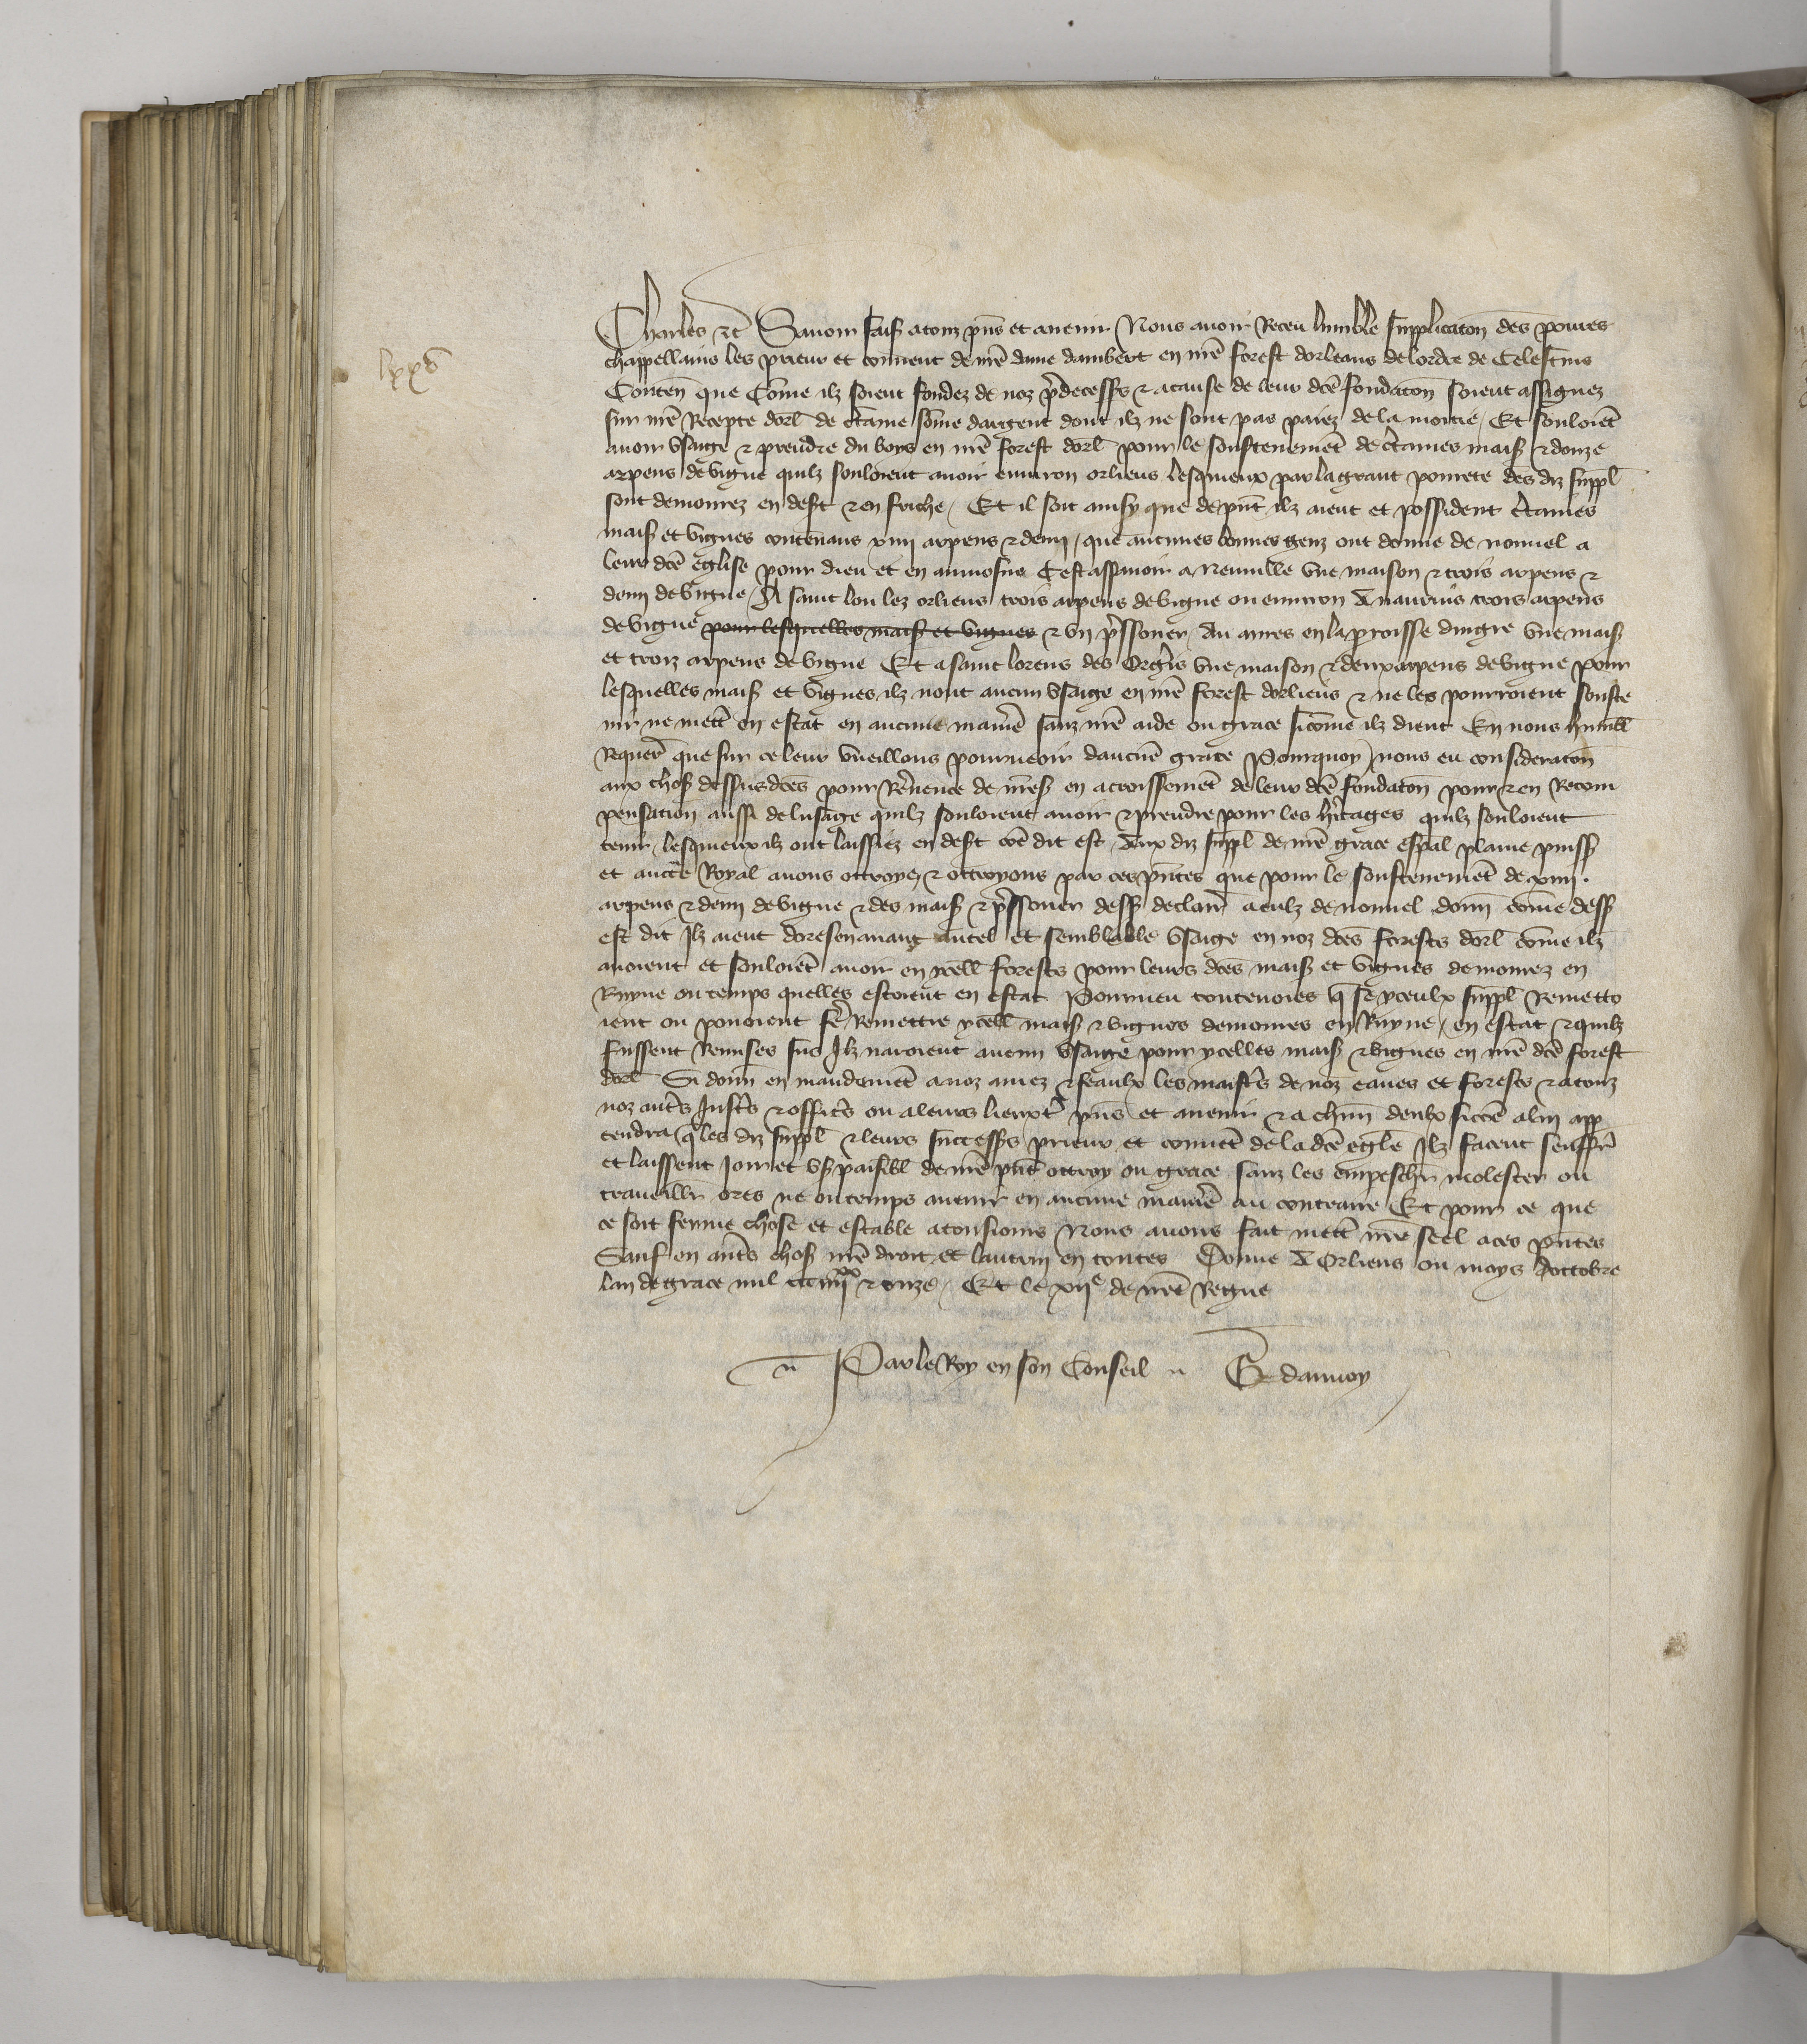 lxxv
Charles etc Savoir faisõs a touz p̃ns et avenir Nous avoir Receu lumble supplicaciõn des povres
chappellains les prieur et couvent de nr̃e dame dambert en nr̃e forest dorleans de lordre de Celestins
Conteñ que Cõme ilz soient fondez de noz p̃decess̃s & a cause de leur dcẽ fondaciõn soient assignez
sur nr̃e Recepte dorl̃ de c̃taine sõme dargent dont ilz ne sont pas paiez de la moitie / Et souloiẽt
avoir usaige & prendre du boys en nr̃e forest dorl̃ pour le soustenemẽt de c̃taines mais̃ & douze
arpens de vigne quilz souloient avoir environ orliens lesquieux par la grant povrete des diz suppl̃
sont demourez en desc̃t & en friche / Et il soit ainsy que de p̃nt ilz aient et possident c̃taines
mais̃ et vignes contenans xiiii arpens & demi / que aucunes bonnes genz ont donne de nouvel a
leur dcẽ eglise pour dieu et en aumosne Cest assavoir a Neuville une maison & trois arpens &
demi de vigne / A saint lou lez orliens trois arpens de vigne ou environ A nauvins trois arpens
de vigne pour lesquelles mais̃ et vignes & un p̃ssouer / Au aires en la p̃roisse dingre une mais̃
et troiz arpens de vigne Et a saint lorens des Orgẽs une maison & deux arpens de vigne pour
lesquelles mais̃ et vignes ilz nont aucun usaige en nr̃e forest dorliens & ne les pourroient souste
nir ne mett̃ en estat en aucune maniẽ sanz nr̃e aide ou grace sicõme ilz dient En nous humbl̃
Requer̃ que sur ce leur vueillons pourveoir daucuẽ grace Pourquoy / nous eu consideraciõn
aux chos̃ dessusdcẽs pour Rev̾ence de nr̃es̃ en acroissemẽt de leur dcẽ fondaciõn pour & en Recom
pensation aussi de lusage quilz souloient avoir & prendre pour les h̾itages quilz souloient
tenir / lesquieux ilz ont laissiez en desc̃t cõe dit est / Aux diz suppl̃ de nr̃e grace esp̃al plaine puiss̃
et auct̃e Royal avons ottroye / & ottroyons par ces p̃ntes que pour le soustenemẽt de xiiii.
arpens & demi de vigne & des mais̃ & p̃ssouer dess̃ declair̃ a eulz de nouvel donñ cõme dess̃
est dit Ilz aient doresenavant autel et semblable usaige en noz dcẽs forests dorl̃ cõme ilz
avoient et souloiẽt avoir en ycell̃ forests pour leurs dcẽs mais̃ et vignes demourez en
Ruyne ou temps quelles estoient en estat Pourveu toutevoies q̃ se yceulx suppl̃ Remetto
ient ou povoient fẽ Remettre ycell̃ mais̃ & vignes demourees en Ruyne / en estat & quilz
fussent Remises sus Ilz naroient aucun usaige pour ycelles mais̃ & vignes en nr̃e dcẽ forest
dorl̃ Si donñ en mandemẽt a noz amez & feaulx les maist̃s de noz eaues et forests & a touz
noz autr̃s Justc̃s & offic̃s ou a leurs lieuxt̃ p̃ns et avenir & a chũn deulx sicõe a luy app
tendra q̃ les diz suppl̃ & leurs success̃s prieur et couvẽt de la dcẽ egl̃e Ilz facent seuffr̃
et laissent Jouir et us̃ paisibl̃ de nr̃e p̃nt ottroy ou grace sanz les empeschr̃ molester ou
traveillr̃ ores ne ou temps avenir en aucune maniẽ au contraire Et pour ce que
ce soit ferme chose et estable a tousiours Nous avons fait mett̃ nr̃e seel a ces p̃ntes
Sauf en autr̃s chos̃ nr̃e droit et lautruy en toutes Donne A Orliens ou moys doctobre
lan de grace mil ccc iiii xx & onze / Et le xii e de nr̃e Regne
Par le Roy en son Conseil G daunoy